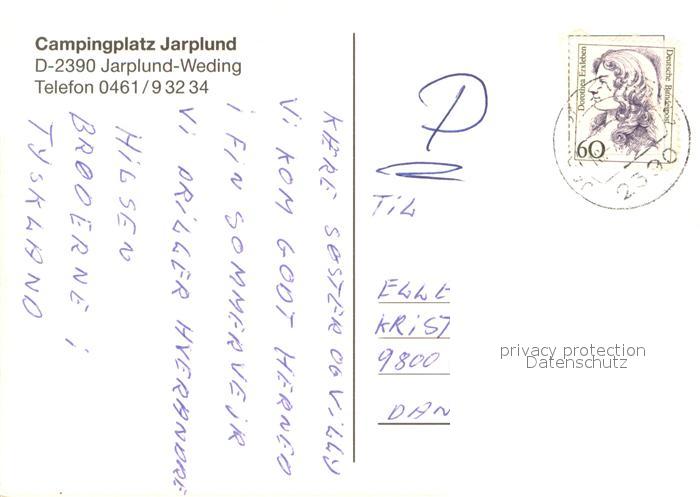 Campingplatz Jarplund
D-2390 Jarplund-Weding
Telefon 0461/9 32 34
KÆRE SØSTER OG VILLY
Vi KOM GODT HERNED
i FiN SOMMERVEJR
Vi DRiLLER HVERANDRE
HiLSEN
BRØDERNE i
TYSKLAND
P
TiL
ELLE
KRiST
9800
DAN
Dorothea Erxleben
Deutsche Bundespost
60
2390
privacy protection
Datenschutz